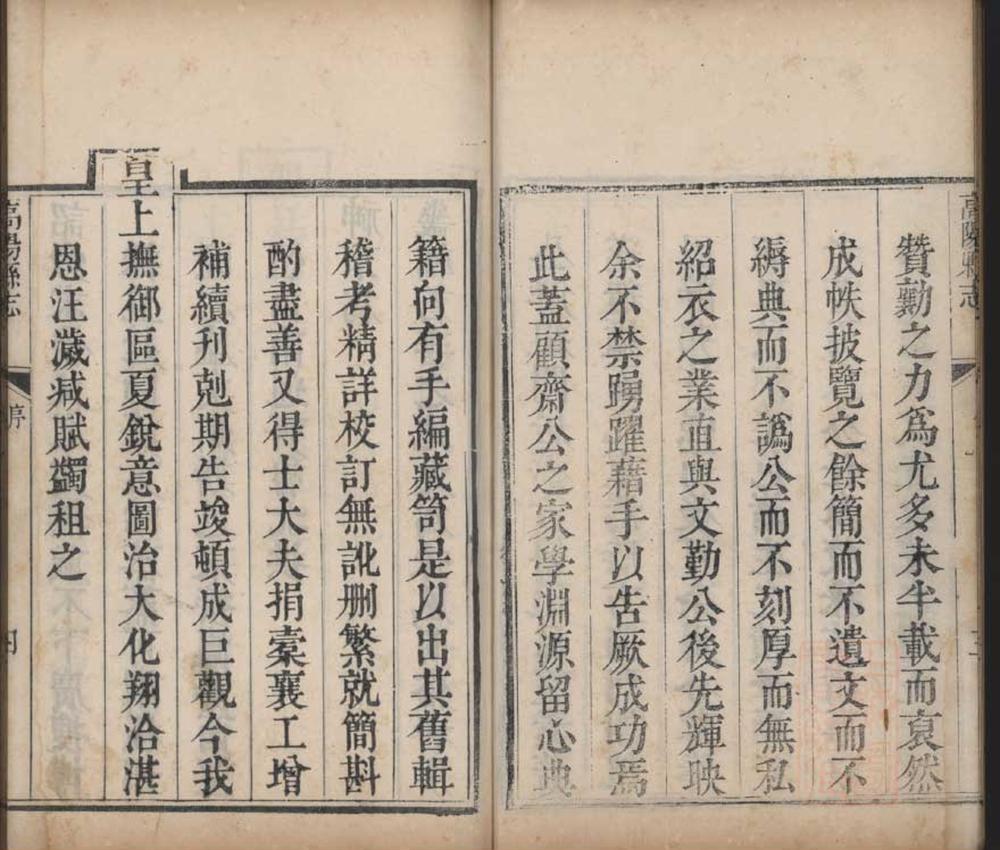 高陽縣志
贊勷之力爲尤多未半載而裒然
成帙披覽之餘簡而不遺文而不
縟典而不譌公而不刻厚而無私
紹衣之業直與文勤公後先輝映
余不禁踴躍藉手以告厥成功焉
此蓋顧齋公之家學淵源留心典
籍向有手編藏笥是以出其舊輯
稽考精詳校訂無訛刪繁就簡斟
酌盡善又得士大夫捐槖襄工增
補續刋剋期告竣頓成巨觀今我
皇上撫御區夏銳意圖治大化翔洽湛
恩汪濊减賦蠲租之
高陽縣志
序